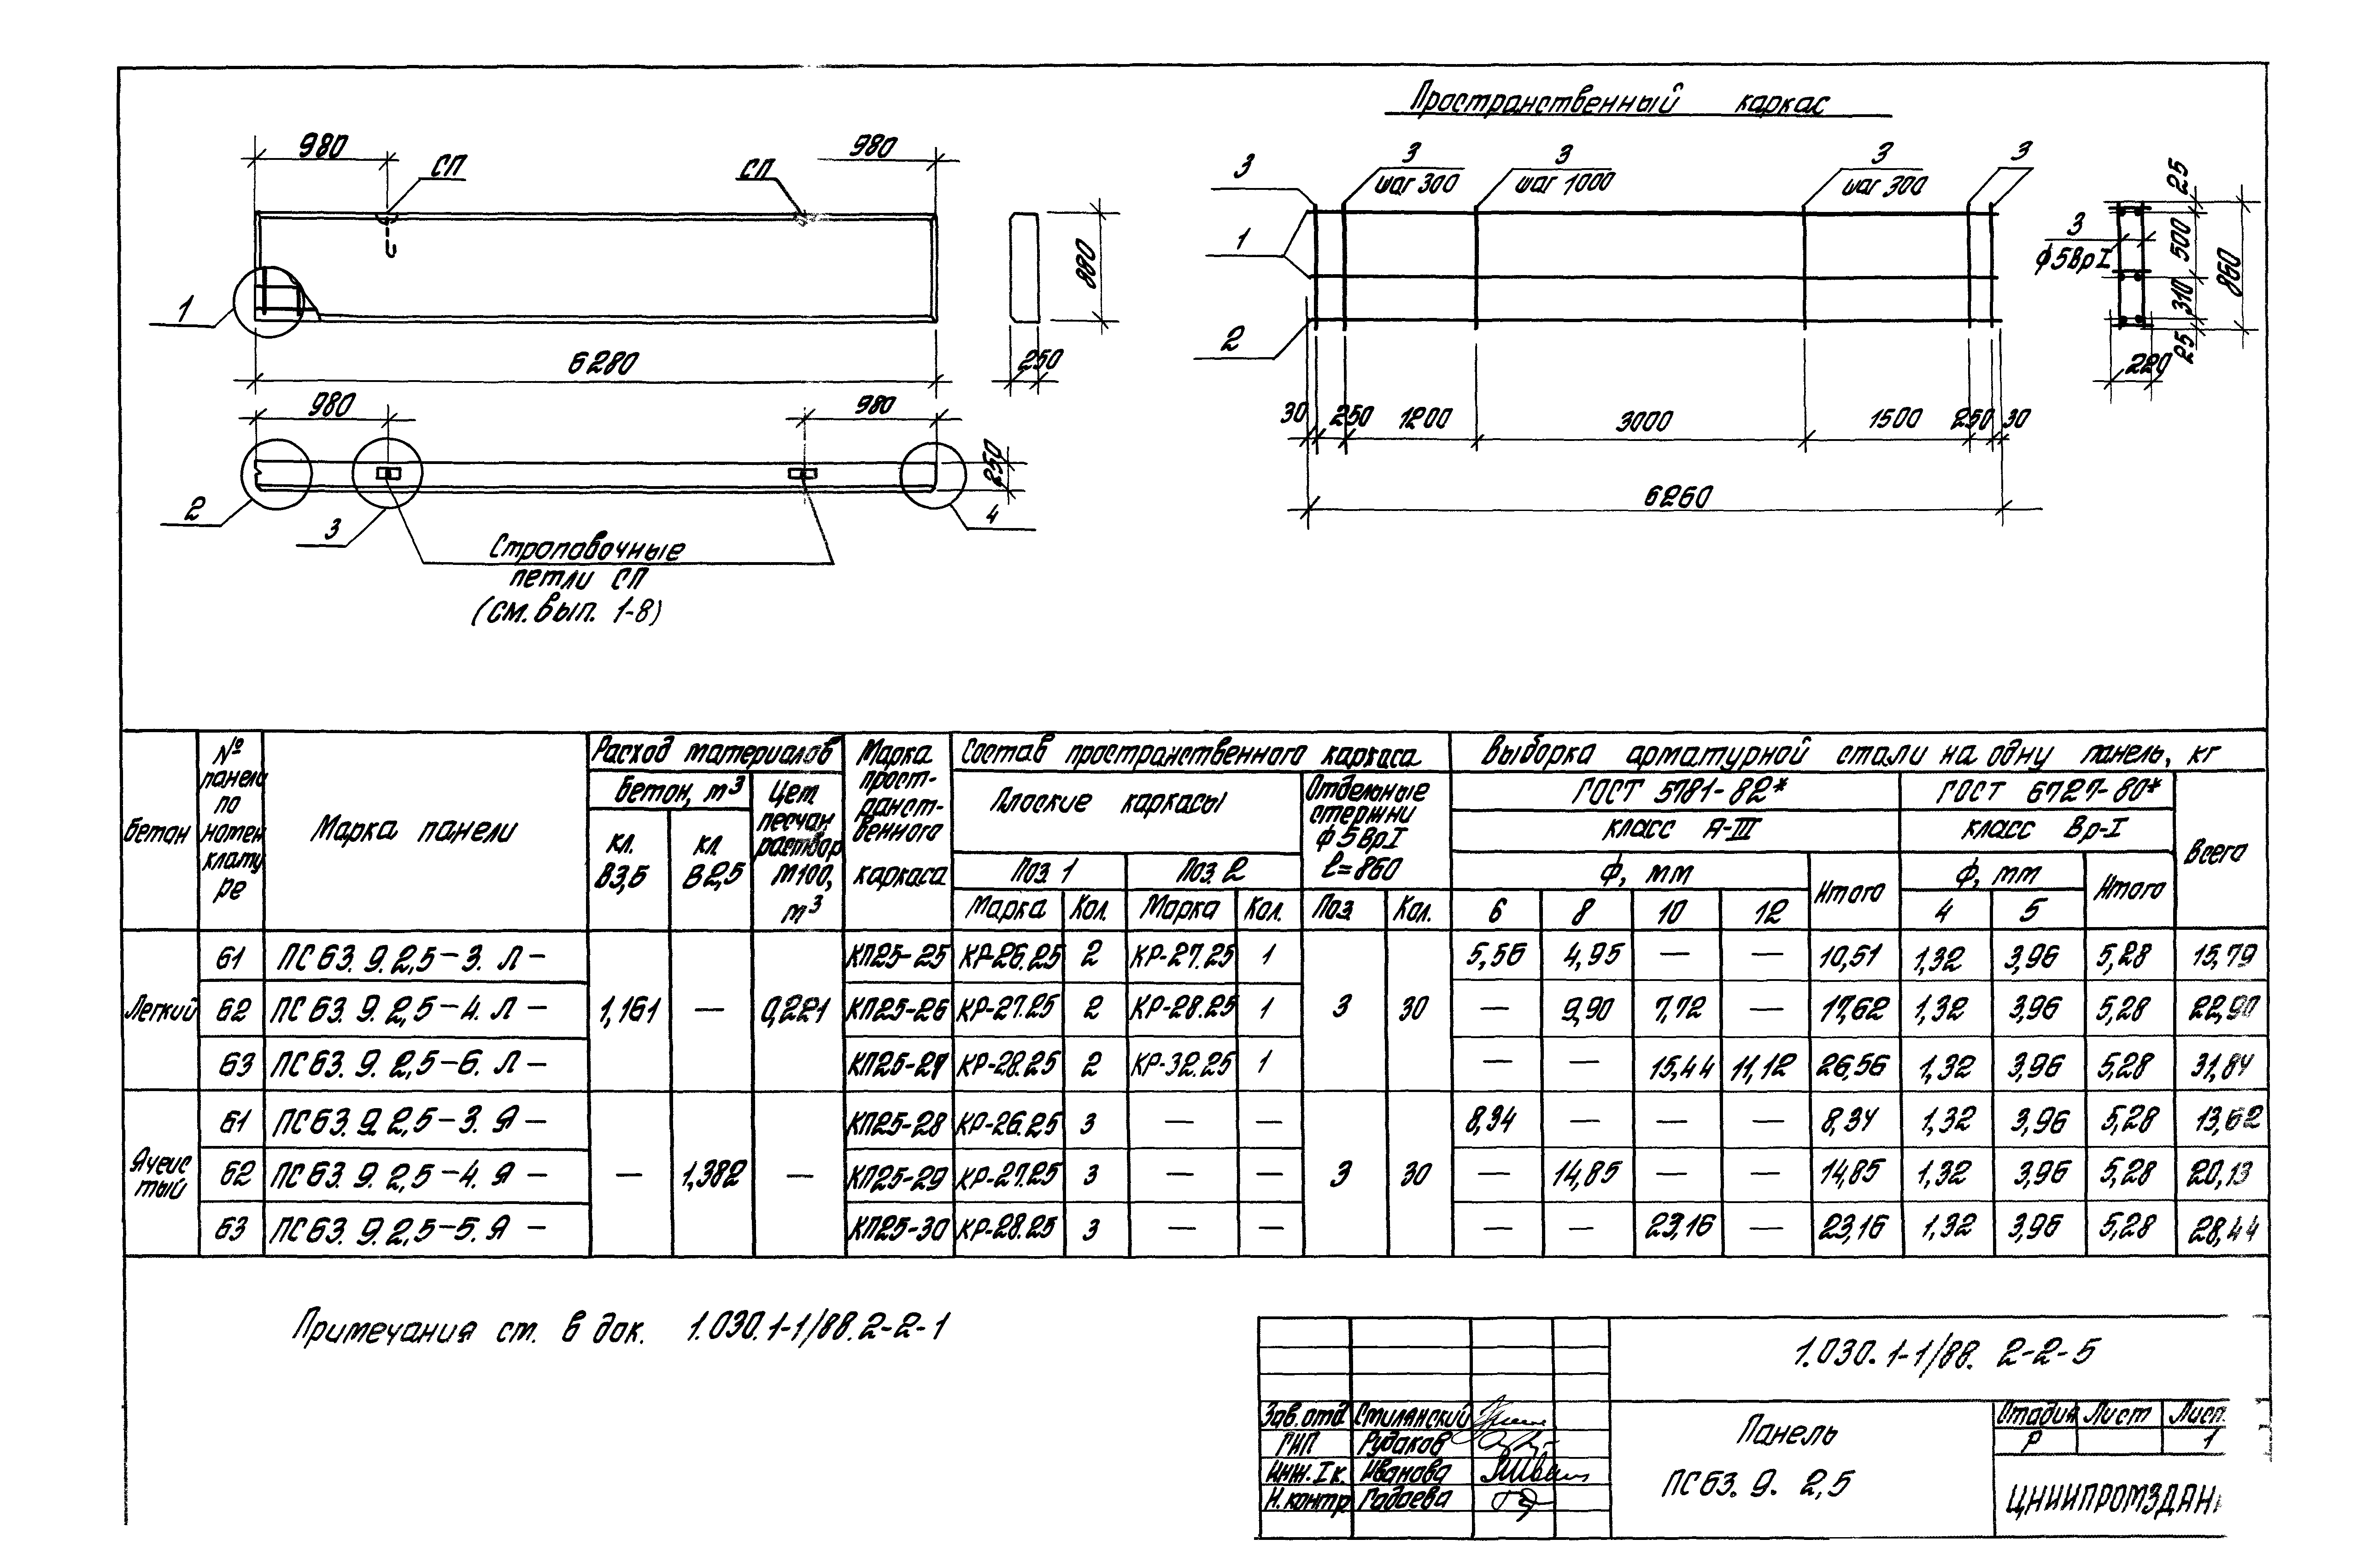 Пространственный каркас
980
980
СП
СП
880
1
6280
250
980
980
250
2
3
4
Строповочные
петли СП
(см. вып. 1-8)
3
3
шаг 300
3
шаг 1000
3
шаг 300
3
1
2
30
250
1200
3000
1500
250
30
6260
25
3
ф5ВрI
500
310
860
25
220
Бетон
№ панели по номен клату ре
Марка панели
Расход материалов
Бетон, м³
кл. В3,5
кл. В2,5
Цем. песчан раствор М100, м³
Марка прост- ранст- венного каркаса
Состав пространственного каркаса
Плоские каркасы
Поз. 1
Поз. 2
Марка Кол. Марка Кол.
Отдельные стержни ф5ВрI ℓ=860
Поз. Кол.
Выборка арматурной стали на одну панель, кг
ГОСТ 5781-82*
ГОСТ 6727-80*
класс А-III
класс Вр-I
Всего
ф, мм
Итого
ф, мм
Итого
6 8 10 12 4 5
Легкий
61 ПС63.9.2,5-3.Л- КП25-25 КР-26.25 2 КР-27.25 1 5,56 4,95 — — 10,51 1,32 3,96 5,28 15,79
62 ПС63.9.2,5-4.Л- 1,161 — 0,221 КП25-26 КР-27.25 2 КР-28.25 1 3 30 — 9,90 7,72 — 17,62 1,32 3,96 5,28 22,90
63 ПС63.9.2,5-6.Л- КП25-27 КР-28.25 2 КР-32.25 1 — — 15,44 11,12 26,56 1,32 3,96 5,28 31,84
Ячеис тый
61 ПС63.9.2,5-3.Я- КП25-28 КР-26.25 3 — — 8,34 — — — 8,34 1,32 3,96 5,28 13,62
62 ПС63.9.2,5-4.Я- — 1,382 — КП25-29 КР-27.25 3 — — 3 30 — 14,85 — — 14,85 1,32 3,96 5,28 20,13
63 ПС63.9.2,5-5.Я- КП25-30 КР-28.25 3 — — — — 23,16 — 23,16 1,32 3,96 5,28 28,44
Примечания см. в док. 1.030.1-1/88.2-2-1
1.030.1-1/88. 2-2-5
Зав.отд Смилянский
ГИП Рудаков
Инж.Iк. Иванова
Н.контр Гадаева
Панель
ПС63.9. 2,5
Стадия Лист
Р 1